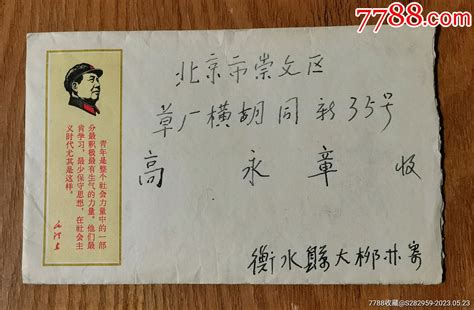 7788.com
北京市崇文区
草厂横胡同新35号
高永章 收
衡水縣大柳林寄
青年是整个社会力量中的一部
分最积极最有生气的力量。他们最
肯学习，最少保守思想，在社会主
义时代尤其是这样。
毛泽东
7788收藏@S282959-2023.05.23